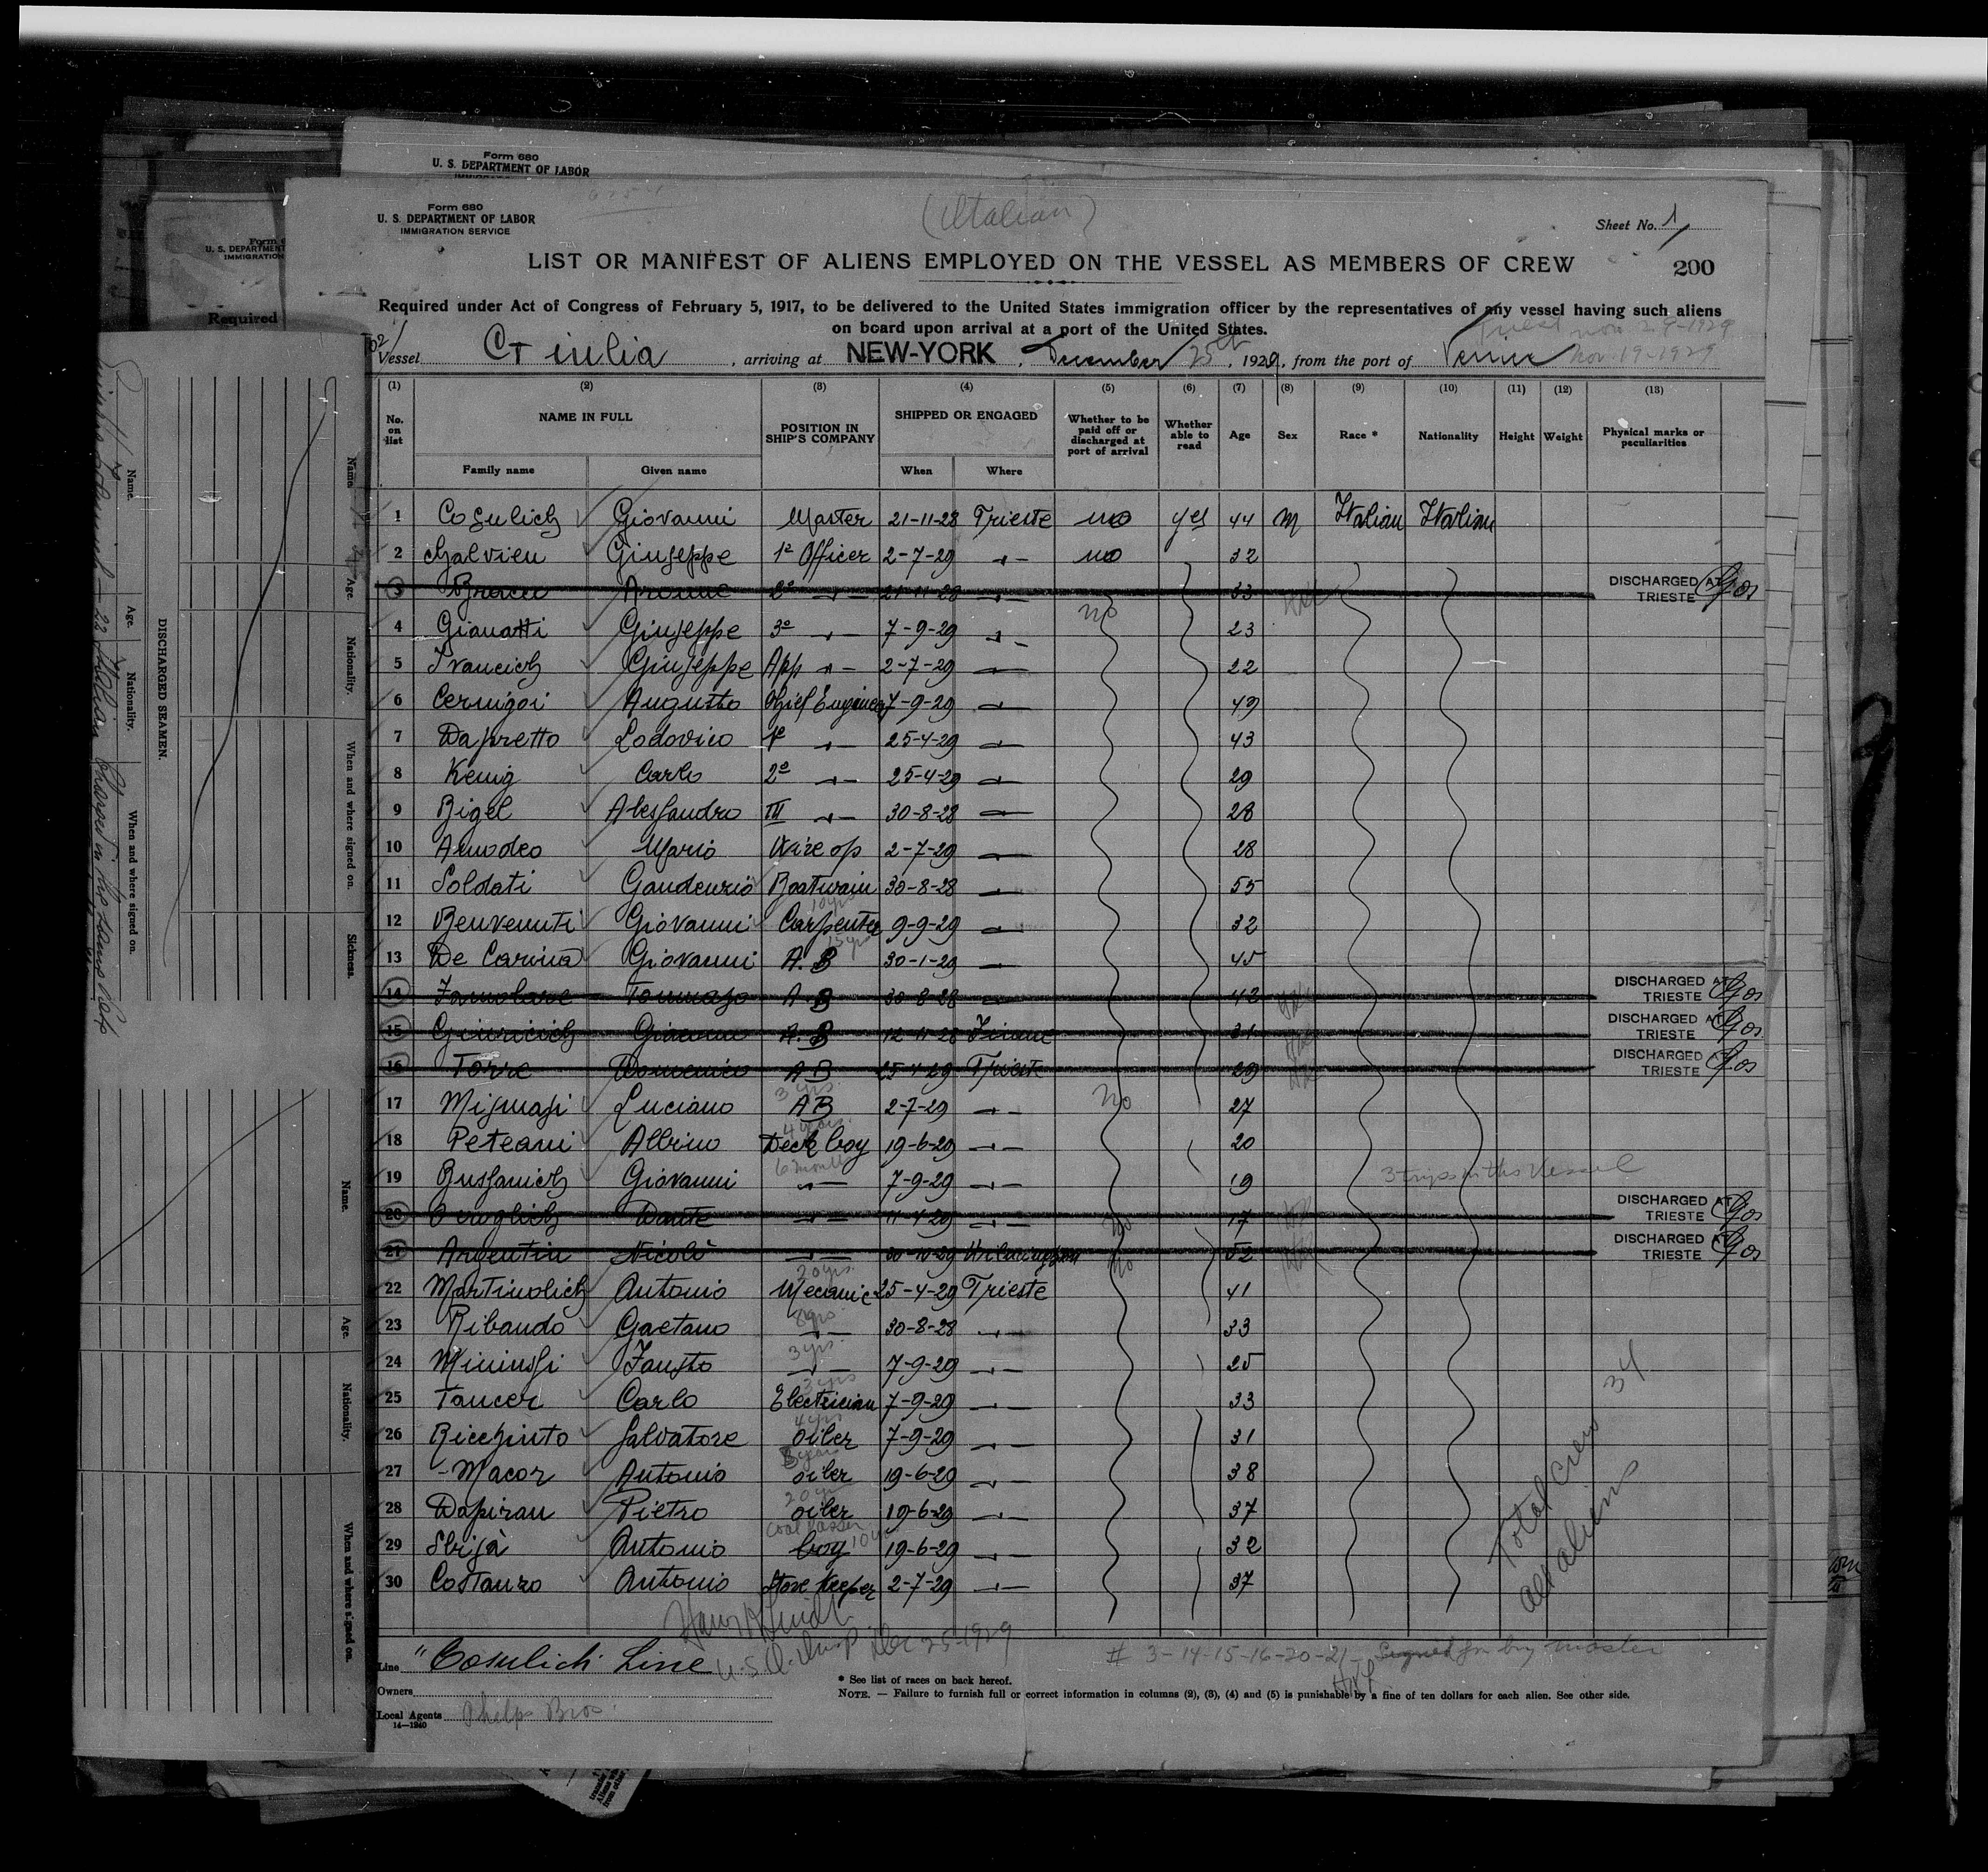 Form 680
U. S. DEPARTMENT OF LABOR
Form 680
U. S. DEPARTMENT OF LABOR
IMMIGRATION SERVICE
(Italian)
Sheet No. 1
LIST OR MANIFEST OF ALIENS EMPLOYED ON THE VESSEL AS MEMBERS OF CREW
200
Required under Act of Congress of February 5, 1917, to be delivered to the United States immigration officer by the representatives of any vessel having such aliens
on board upon arrival at a port of the United States.
Vessel Giulia, arriving at NEW-YORK, December 25th, 1929, from the port of Venice Nov. 19-1929
(1) (2) (3) (4) (5) (6) (7) (8) (9) (10) (11) (12) (13)
No. on list NAME IN FULL Family name Given name POSITION IN SHIP'S COMPANY SHIPPED OR ENGAGED When Where Whether to be paid off or discharged at port of arrival Whether able to read Age Sex Race * Nationality Height Weight Physical marks or peculiarities
1 Cosulich Giovanni Master 21-11-28 Trieste no yes 44 M Italian Italian
2 Giuseppe 1° Officer 2-7-29 no 32
3 2° 21-11-28 33 DISCHARGED AT TRIESTE
4 Gianatti Giuseppe 3° 7-9-29 no 23
5 Ivancich Giuseppe App 2-7-29 22
6 Cernigoi Augusto Chief Engineer 7-9-29 49
7 Dapretto Lodovico 1° 25-4-29 43
8 Kenig Carlo 2° 25-4-29 29
9 Bigel Alessandro III 30-8-28 28
10 Amodeo Mario Wire op 2-7-29 28
11 Soldati Gaudenzio Boatswain 30-8-28 55
12 Benvenuti Giovanni Carpenter 9-9-29 32
13 De Carina Giovanni A.B 30-1-29 45
14 Tommaso A.B 30-8-28 42 DISCHARGED AT TRIESTE
15 Giacomo A.B 12-11-28 31 DISCHARGED AT TRIESTE
16 Torre Domenico AB 25-4-29 Trieste 29 DISCHARGED AT TRIESTE
17 Luciano AB 2-7-29 no 27
18 Peteani Albino Deck boy 19-6-29 20
19 Bussanich Giovanni 7-9-29 19 3 trips on this vessel
20 Dante 11-4-29 no 17 DISCHARGED AT TRIESTE
21 Argentin Nicolò 30-10-29 Wilmington no 52 DISCHARGED AT TRIESTE
22 Martinolich Antonio Mecanic 25-4-29 Trieste 41
23 Ribaudo Gaetano 30-8-28 33
24 Fausto 7-9-29 25
25 Taucer Carlo Electrician 7-9-29 33
26 Ricchiuto Salvatore oiler 7-9-29 31
27 Macor Antonio oiler 19-6-29 38
28 Dapiran Pietro oiler 19-6-29 37
29 Antonio boy 19-6-29 32
30 Costanzo Antonio Store Keeper 2-7-29 37
34
Total Crew
all aliens
Dec 25-1929
# 3-14-15-16-20-21 Signed for by master
Line "Cosulich" Line
* See list of races on back hereof.
Owners
NOTE. — Failure to furnish full or correct information in columns (2), (3), (4) and (5) is punishable by a fine of ten dollars for each alien. See other side.
Local Agents Phelps Bros.
14—1240
DISCHARGED SEAMEN.
Name. Age. Nationality. When and where signed on. Sickness.
Name. Age. Nationality. When and where signed on.